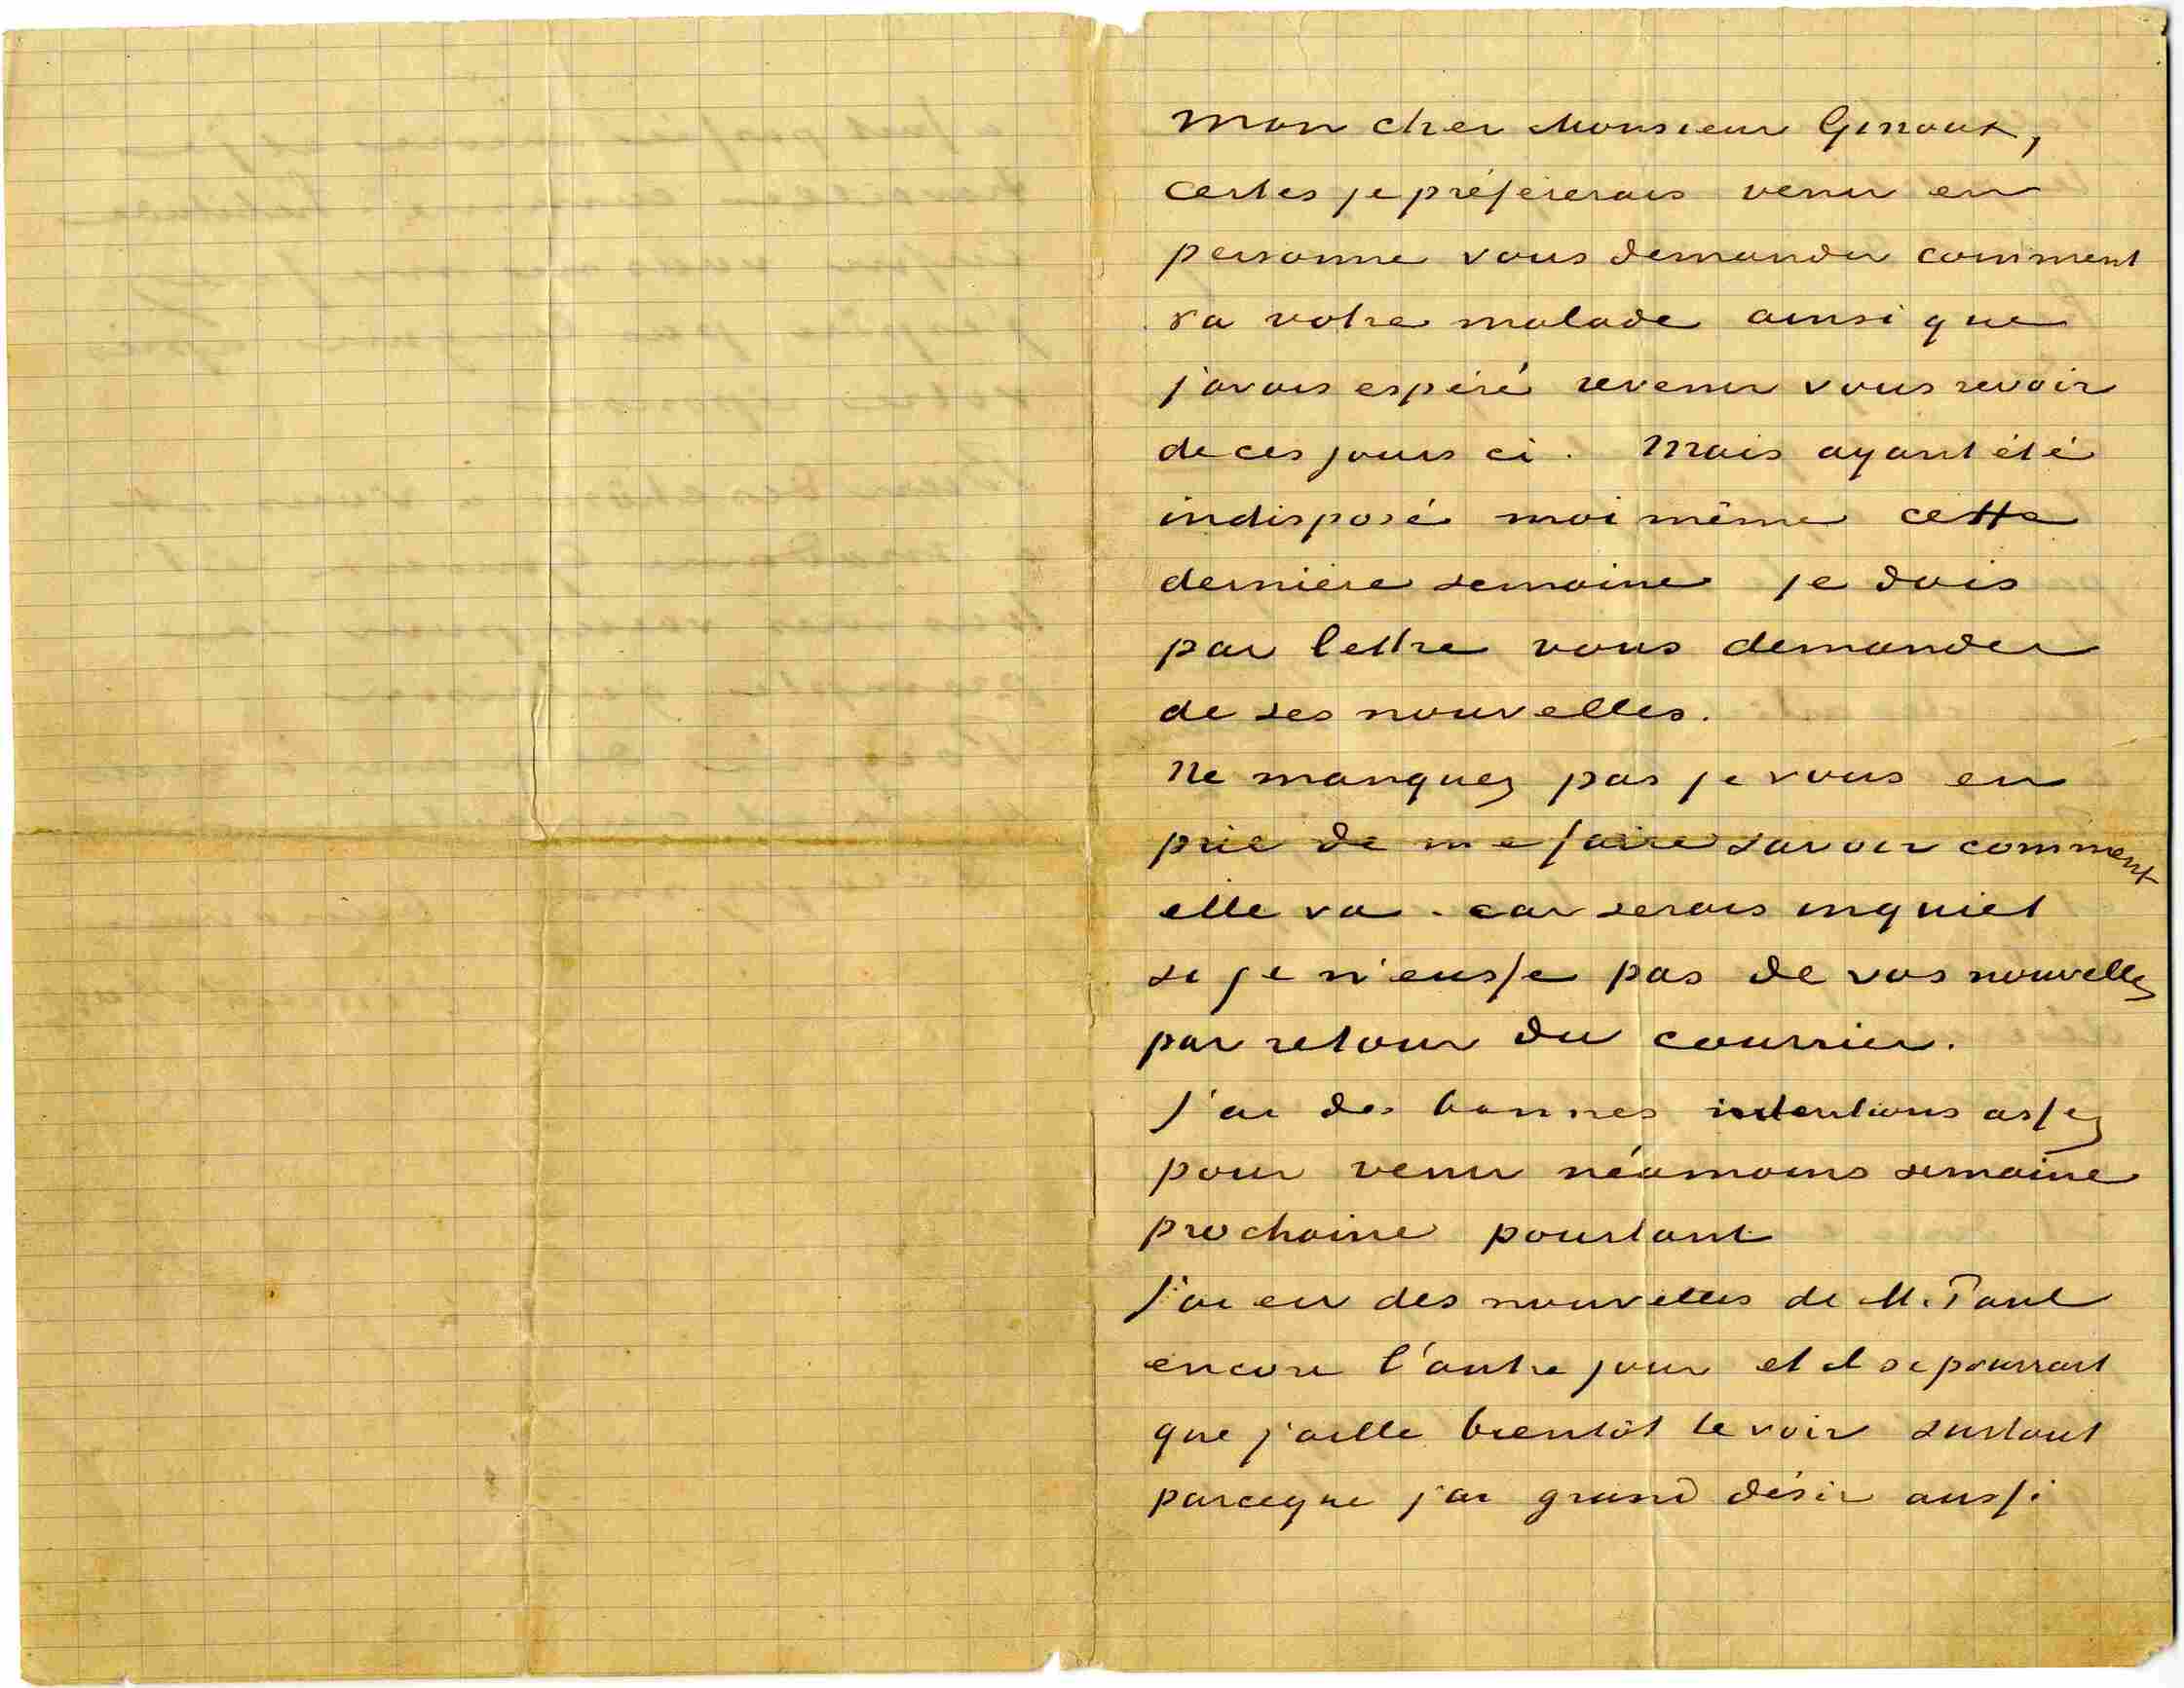 Mon cher Monsieur Ginoux,
certes je préfèrerais venir en
personne vous demander comment
va votre malade ainsi que
j'avais espéré revenir vous revoir
de ces jours ci. Mais ayant été
indisposé moi même cette
dernière semaine je dois
par lettre vous demander
de ses nouvelles.
Ne manquez pas je vous en
prie de me faire savoir comment
elle va. car serais inquiet
si je n'eusse pas de vos nouvelles
par retour du courrier.
J'ai des bonnes intentions assez
pour venir néamoins semaine
prochaine pourtant
J'ai eu des nouvelles de M. Paul
encore l'autre jour et il se pourrait
que j'aille bientôt le voir surtout
parceque j'ai grand désir aussi